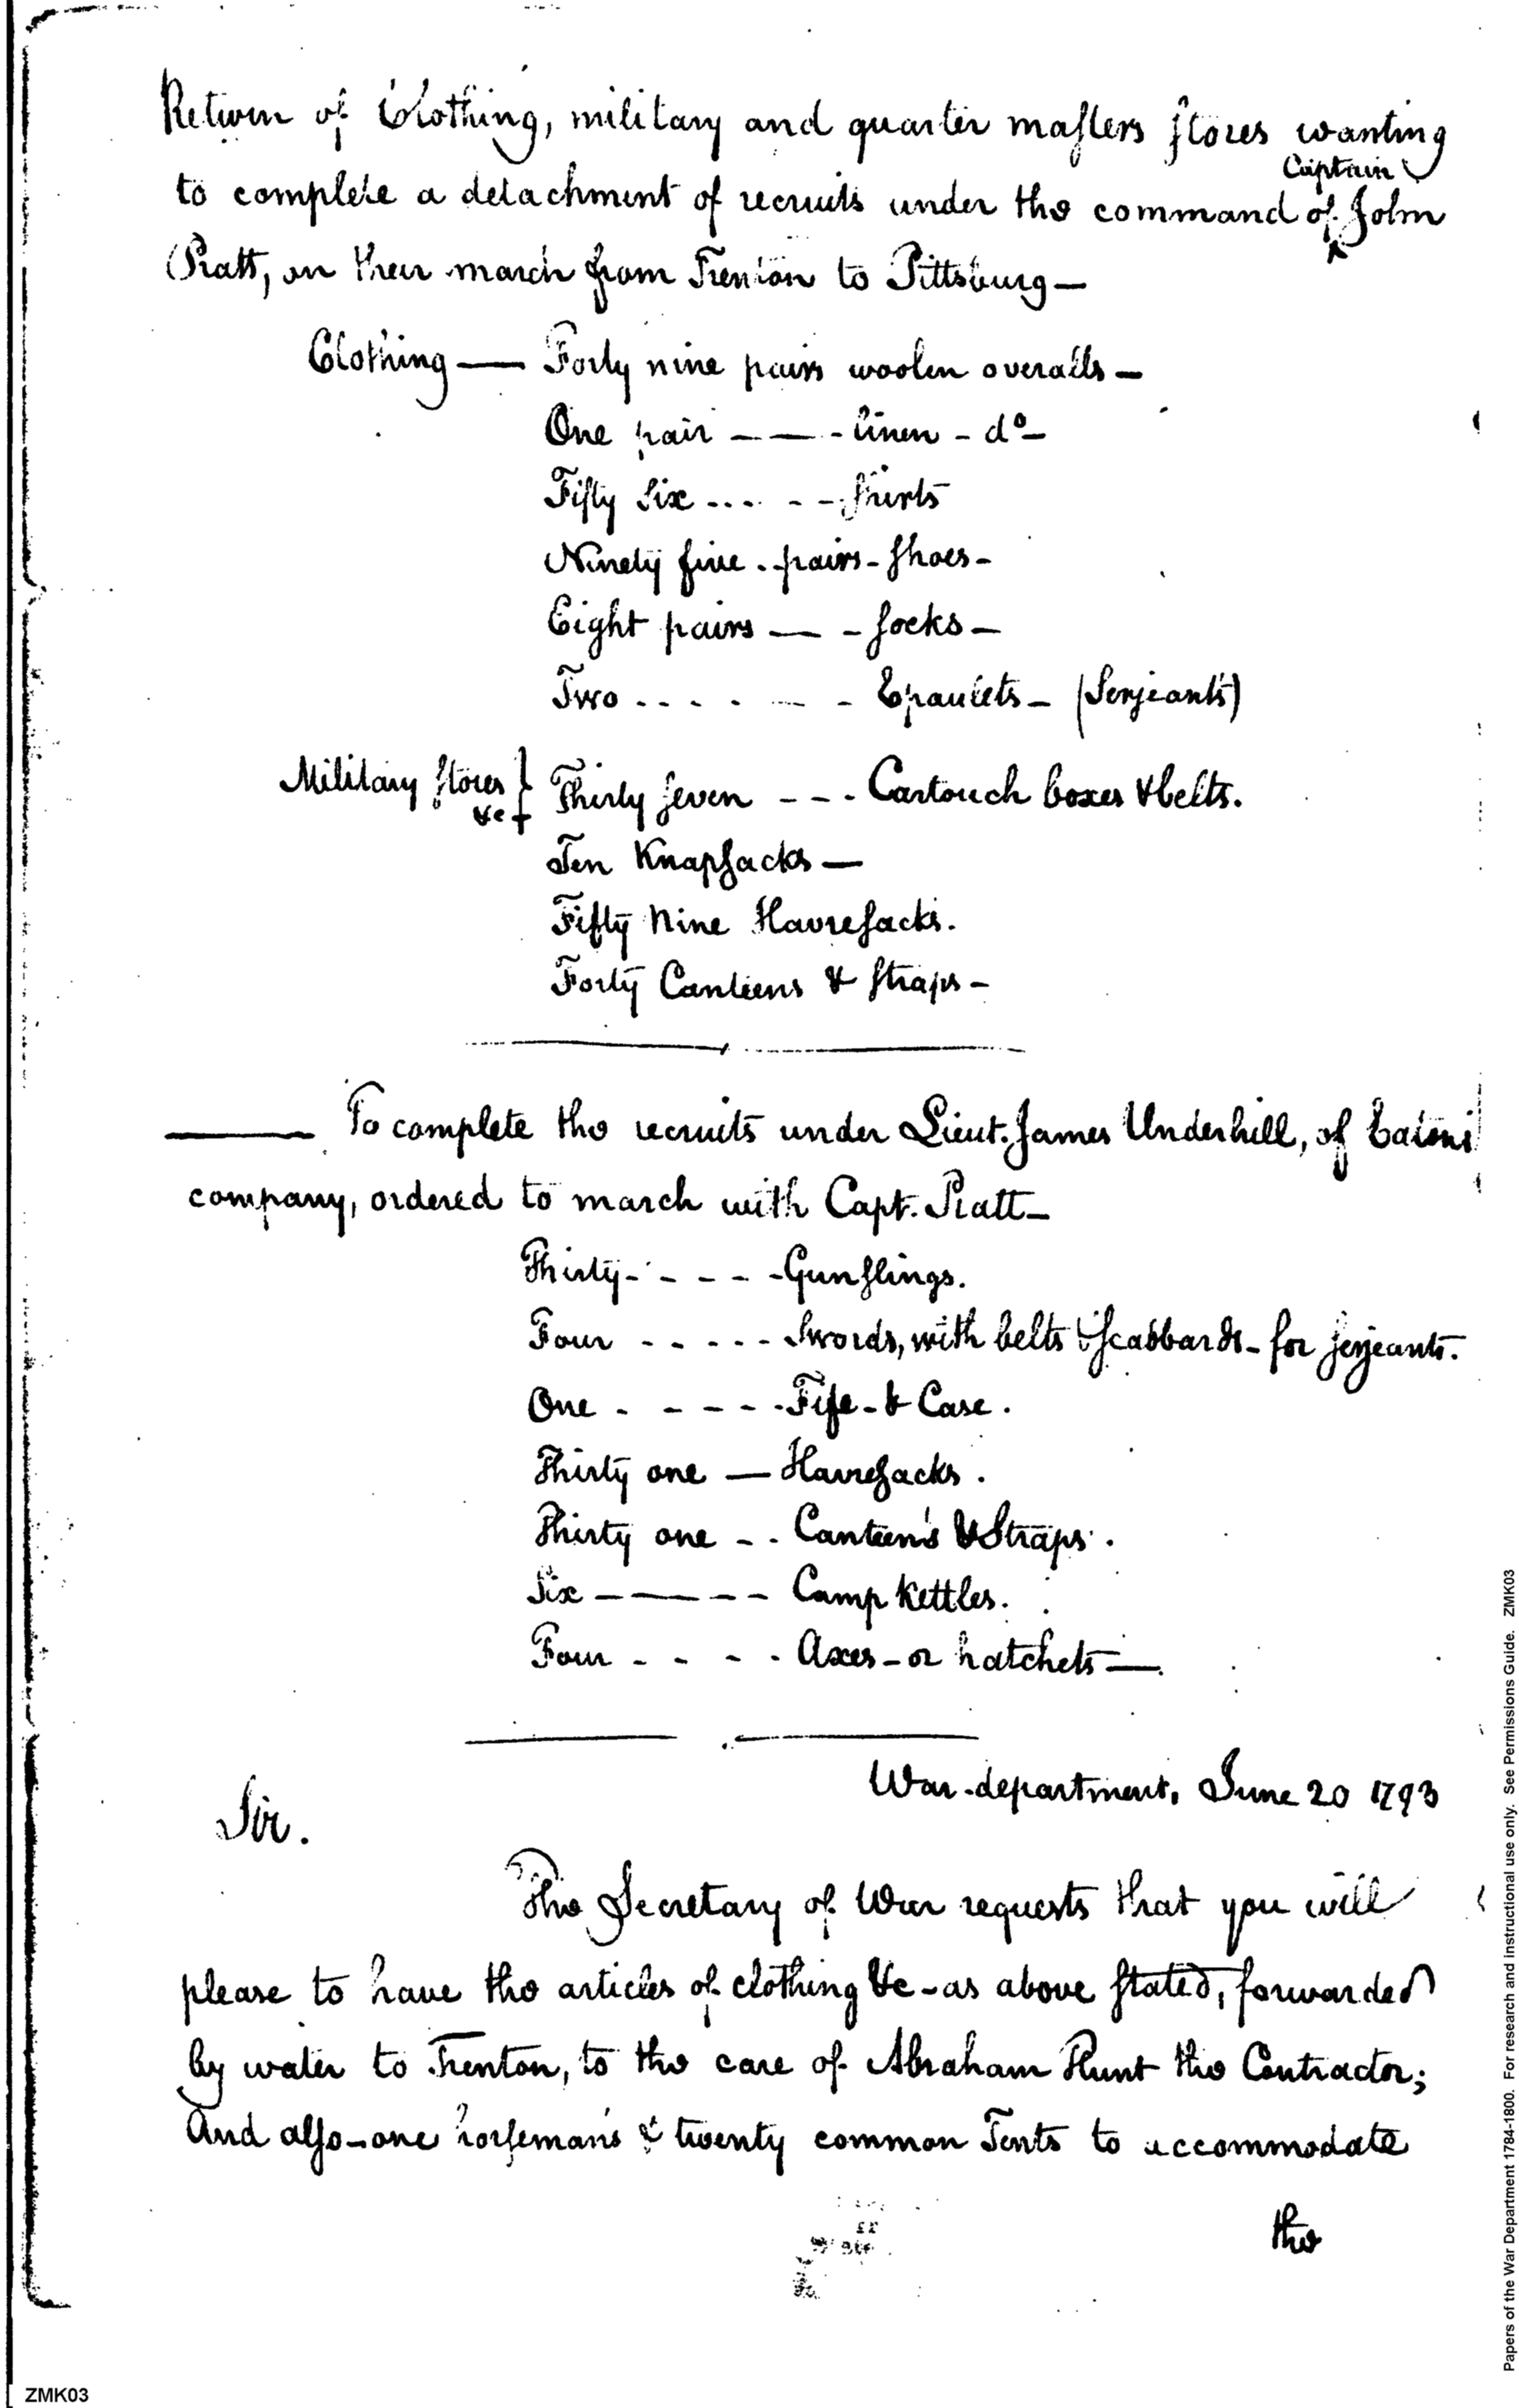 Return of Clothing, military and quarter masters stores wanting
to complete a detachment of recruits under the command of Captain John
Pratt, on their march from Trenton to Pittsburg—
Clothing — Forty nine pairs woolen overalls —
One pair — — - linen - do —
Fifty Six ... - - - shirts
Ninety five . . pairs - shoes -
Eight pairs — - socks —
Two - - - - - - Epaulets — (Serjeants)
Military stores &c } Thirty seven - - - Cartouch boxes & belts.
Ten Knapsacks —
Fifty Nine Havresacks.
Forty Canteens & straps -
——— To complete the recruits under Lieut. James Underhill, of Eatons
company, ordered to march with Capt. Pratt —
Thirty - - - - - Gunslings.
Four - - - - - Swords, with belts & scabbards - for serjeants.
One - - - - - Fife - & Case.
Thirty one — Havresacks.
Thirty one - - Canteen's & Straps.
Six — — — - - Camp Kettles.
Four - - - - Axes - or hatchets —.
War-department, June 20 1793
Sir.
The Secretary of War requests that you will
please to have the articles of clothing &c - as above stated, forwarded
by water to Trenton, to the care of Abraham Hunt the Contractor;
And also - one horseman's & twenty common Tents to accommodate
the
Papers of the War Department 1784-1800. For research and instructional use only. See Permissions Guide. ZMK03
ZMK03